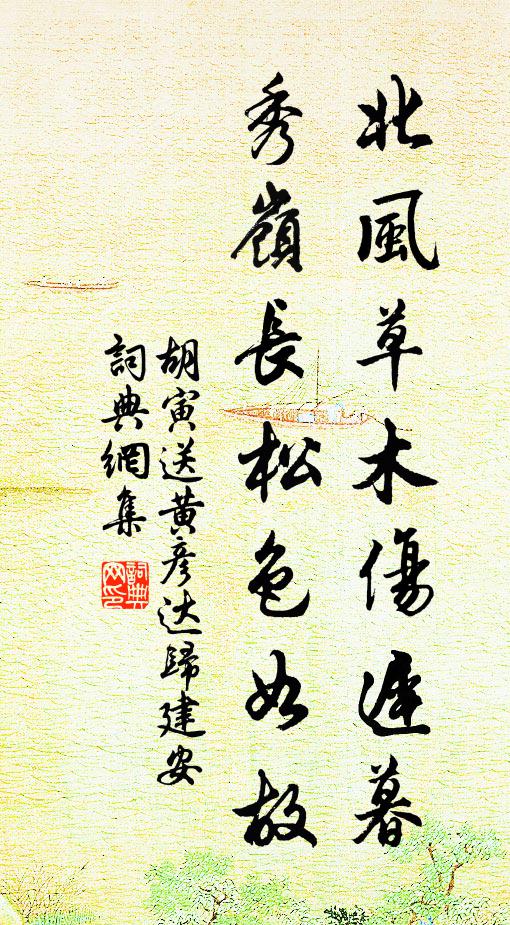 北風草木傷遲暮
秀嶺長松色如故
胡寅送黄彥达歸建安
詞典網集
詞典网印